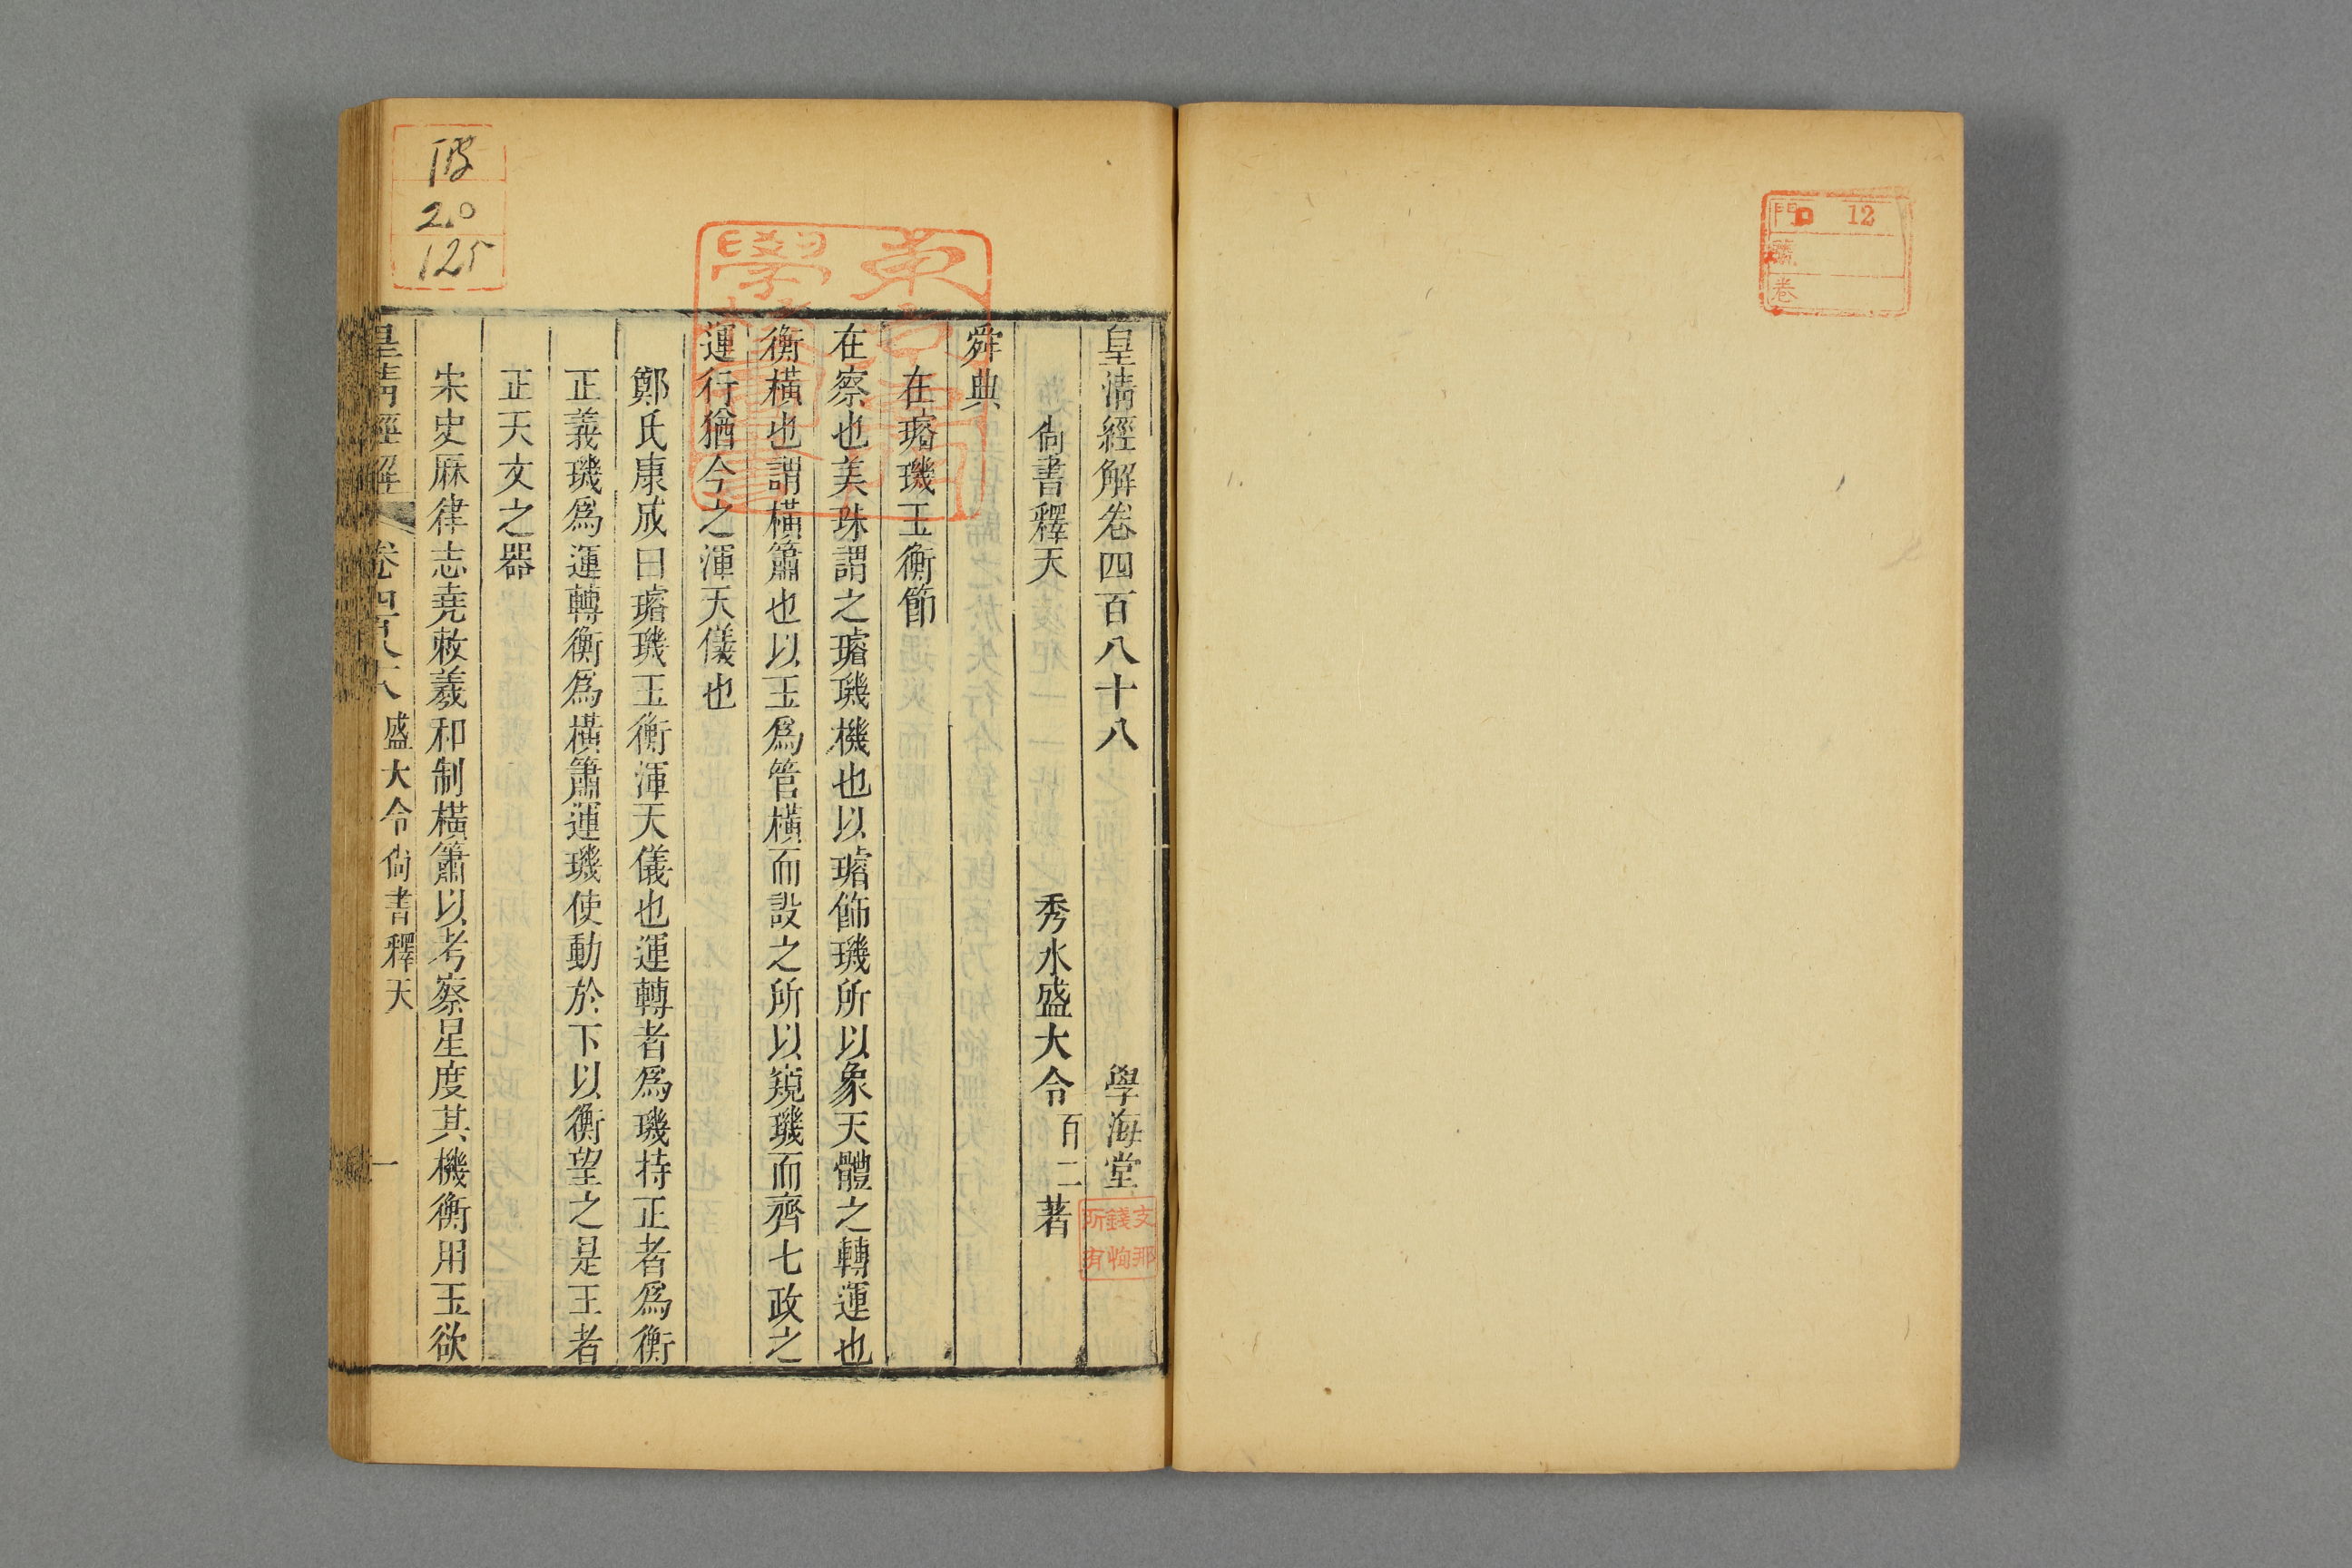 門 12
號
卷
皇清經解卷四百八十八
學海堂
支那
錢恂
所有
尙書釋天
秀水盛大令百二著
舜典
在璿璣玉衡節
在察也美珠謂之璿璣機也以璿飾璣所以象天體之轉運也
衡橫也謂橫簫也以玉爲管橫而設之所以窺璣而齊七政之
運行猶今之渾天儀也
鄭氏康成曰璿璣玉衡渾天儀也運轉者爲璣持正者爲衡
正義璣爲運轉衡爲橫簫運璣使動於下以衡望之是王者
正天文之器
宋史厤律志堯敕羲和制橫簫以考察星度其機衡用玉欲
皇清經解 卷四百八十八 盛大令尙書釋天 一
20
125